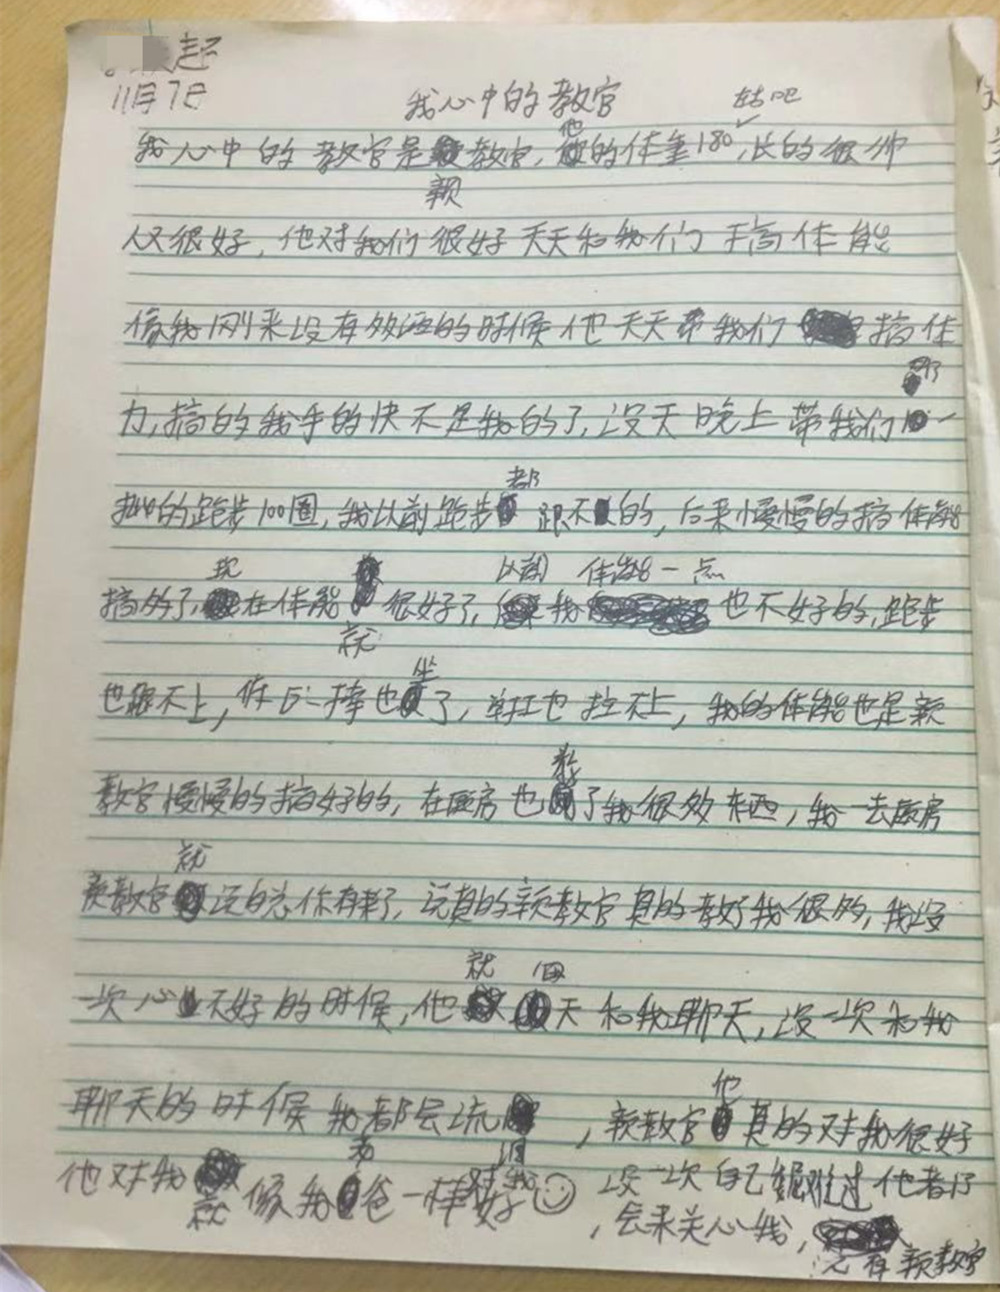 起
11月7日
我心中的教官
姑吧
我心中的教官是颖教官,他的体重180,长的很帅
人又很好,他对我们很好天天和我们搞体能
像我刚来没有多酒的时候他天天带我们搞体
力,搞的我手的快不是我的了,没天晚上带我们都一
的跑步100圈,我以前跑步都跟不的,后来慢慢的搞体能
搞多了,现在体能就很好了,以前我体能一点也不好的,跑步
也跟不上,休 捧也坐了,单杠也拉不上,我的体能也是颖
教官慢慢的搞好的,在厨房也教了我很多东西,我一去厨房
颖教官就没白忩你有来了,说真的颖教官真的教了我很多,我没
一次心不好的时候,他就会天和我聊天,没一次和我
聊天的时候我都会流泪,颖教官他真的对我很好
他对我就像我老爸一样对我好 没一次自己难过他都
会来关心我,
还有颖教官